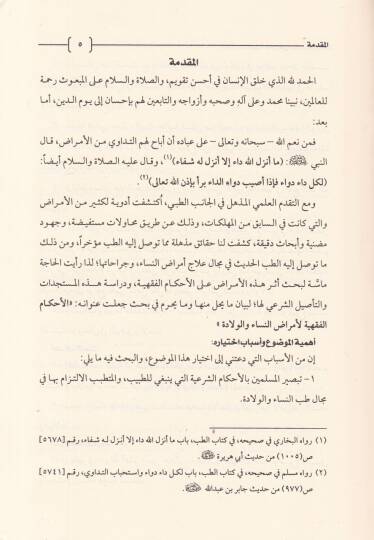 المقدمة
٥
المقدمة
الحمد لله الذي خلق الإنسان في أحسن تقويم، والصلاة والسلام على المبعوث رحمة
للعالمين، نبينا محمد وعلى آله وصحبه وأزواجه والتابعين لهم بإحسان إلى يوم الدين، أما
بعد:
فمن نعم الله – سبحانه وتعالى – على عباده أن أباح لهم التداوي من الأمراض، قال
النبي ﷺ: (ما أنزل الله داء إلا أنزل له شفاء)(١)، وقال عليه الصلاة والسلام أيضاً:
(لكل داء دواء فإذا أصيب دواء الداء برأ بإذن الله تعالى)(٢).
ومع التقدم العلمي المذهل في الجانب الطبي، اُكتشفت أدوية لكثير من الأمراض
والتي كانت في السابق من المهلكات، وذلك عن طريق محاولات مستفيضة، وجهود
مضنية وأبحاث دقيقة، كشفت لنا حقائق مذهلة مما توصل إليه الطب مؤخراً، ومن ذلك
ما توصل إليه الطب الحديث في مجال علاج أمراض النساء، وجراحاتها؛ لذا رأيت الحاجة
ماسَّة لبحث أثر هذه الأمراض على الأحكام الفقهية، ودراسة هذه المستجدات
والتأصيل الشرعي لها؛ لبيان ما يحل منها وما يحرم في بحث جعلت عنوانه: «الأحكام
الفقهية لأمراض النساء والولادة»
أهمية الموضوع وأسباب اختياره:
إن من الأسباب التي دعتني إلى اختيار هذا الموضوع، والبحث فيه ما يلي:
١- تبصير المسلمين بالأحكام الشرعية التي ينبغي للطبيب، والمتطبب الالتزام بها في
مجال طب النساء والولادة.
(١) رواه البخاري في صحيحه، في كتاب الطب، باب ما أنزل الله داء إلا أنزل له شفاء، رقم [٥٦٧٨]
ص(١٠٠٥) من حديث أبي هريرة ﵁.
(٢) رواه مسلم في صحيحه، في كتاب الطب، باب لكل داء دواء واستحباب التداوي، رقم [٥٧٤١]
ص(٩٧٧) من حديث جابر بن عبدالله ﵁.